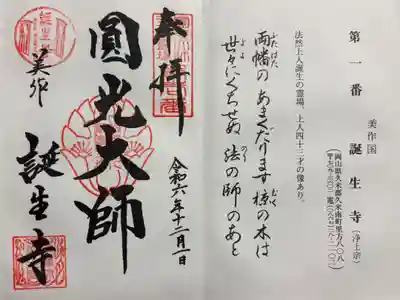 第一番 誕生寺（浄土宗）
美作国
（岡山県久米郡久米南町里方八〇八
法然上人誕生の霊場、上人四十三才の像あり。
両幡のあまくだります椋の木は
ふたはた
むく
世々にくちせぬ法の師のあと
よよ
のり
奉拝
令和六年十二月一日
圓光大師
美作
誕生寺